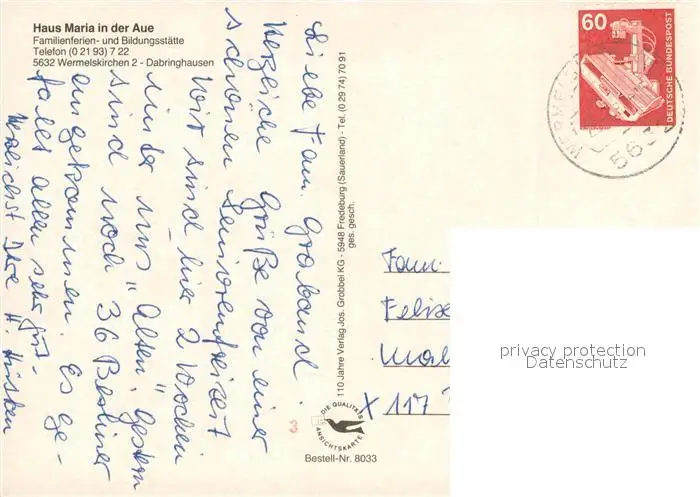 Haus Maria in der Aue
Familienferien- und Bildungsstätte
Telefon (0 21 93) 7 22
5632 Wermelskirchen 2 - Dabringhausen
Liebe Fam. Graband!
Herzliche Grüße von einer
schönen Seniorenfreizeit
Wir sind hier 2 Wochen
uns "Alten", Gestern
sind noch 36 Berliner
angekommen. Es ge-
fällt allen sehr gut.
Herzlichst Ihre H.
110 Jahre Verlag Jos. Grobbel KG - 5948 Fredeburg (Sauerland) - Tel. (0 29 74) 70 91
ges. gesch.
60
DEUTSCHE BUNDESPOST
563
Fam.
Felix
X 117
privacy protection
Datenschutz
3
DIE QUALITÄTS
ANSICHTSKARTE
Bestell-Nr. 8033